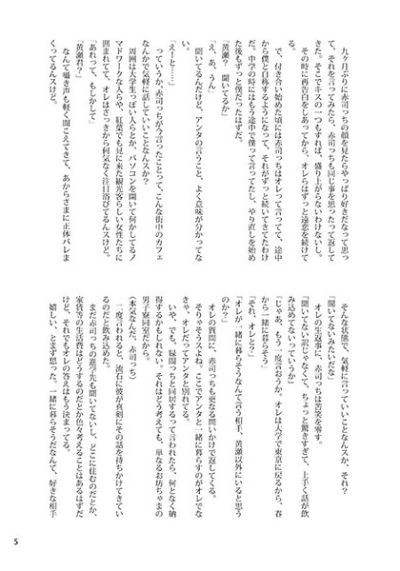 九ヶ月ぶりに赤司っちの顔を見たらやっぱり好きだなって思っ
て、それを言ってみたら、赤司っちも同じ事を思ったって返して
きた。そこでキスの一つもすれば、盛り上がらないわけないし。
その時に再告白をしあってから、オレらはずっと遠恋を続けて
る。
で、付き合い始めた頃には赤司っちはオレって言ってて、途中
から僕と自称するようになって、それがずっと続いてきてたわけ
だ。中学の時にはもう途中で僕って言ってたし、やり直しを始め
た後もずっと僕だったはずだ。
「黄瀬？　聞いてるか」
「え、あ、うん」
聞いてるんだけど、アンタの言うこと、よく意味が分かってな
い。
「えーと……」
っていうか、赤司っちが今言ったことって、こんな街中のカフェ
なんかで気軽に話していいことなんスか？
周囲は大学生っぽい人らとか、パソコンを開いて何かしてるノ
マドワークな人らや、紅葉でも見に来た観光客らしい女性たちに
囲まれてて、オレはさっきから何気なく注目浴びてるんスけど。
「あれって、もしかして」
なんて囁き声も軽く聞こえてきて、あからさまに正体バレま
くってるんスけど。
そんな状態で、気軽に言っていいことなんスか、それ？
「聞いてないみたいだな」
オレの生返事に、赤司っちは苦笑を零す。
「聞いてない訳じゃなくて、ちょっと驚きすぎて、上手く話が飲
み込めてないっていうか」
「じゃあ、もう一度言おうか。オレは大学で東京に戻るから、春
から一緒に暮らそう」
「それ、オレとっ？」
「オレが一緒に暮らそうなんて言う相手、黄瀬以外にいると思う
のか？」
オレの質問に、赤司っちも更なる問いかけで返してくる。
そりゃそうスよね。ここでアンタと一緒に暮らすのがオレでな
きゃ、オレだってアンタと別れてる。
いや、でも、緑間っちと同居するって言われたら、何となく納
得するかもしれない。それはどう考えても、単なるお坊ちゃまの
男子寮同室だから。
（本気なんだ、赤司っち）
二度言われると、流石に彼が真剣にその話を持ちかけてきてい
るのだと飲み込めた。
まだ赤司っちの進学先も聞いてないし、どこに住むのだとか、
家賃等の生活費はどうするのだとか色々考えることはあるはずだ
けど、それでもオレの答えはもう決まってる。
嬉しい、とまず思った。一緒に暮らそうだなんて、好きな相手
5